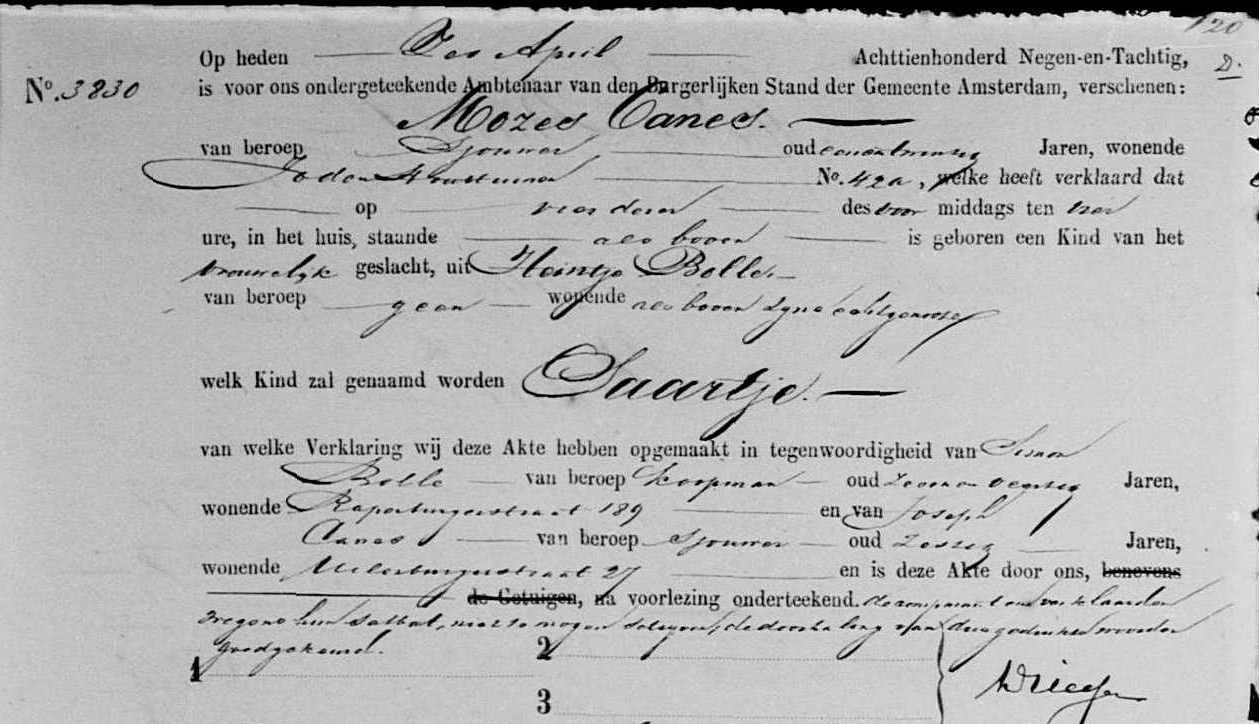 120
Op heden Zes April Achttienhonderd Negen-en-Tachtig, D.
No. 3830 is voor ons ondergeteekende Ambtenaar van den Burgerlijken Stand der Gemeente Amsterdam, verschenen:
Mozes Canes.
van beroep Sjouwer oud eenentwintig Jaren, wonende
Joden Houttuinen No. 42a, welke heeft verklaard dat
op vierdezer des voor middags ten
ure, in het huis, staande als boven is geboren een Kind van het
vrouwelijk geslacht, uit Heintje Bolle.
van beroep geen wonende als boven zijne echtgenoote
welk Kind zal genaamd worden Saartje.
van welke Verklaring wij deze Akte hebben opgemaakt in tegenwoordigheid van Simon
Bolle van beroep Koopman oud zevenenveertig Jaren,
wonende Rapenburgerstraat 189 en van Joseph
Canes van beroep Sjouwer oud zestig Jaren,
wonende Uilenburgerstraat 27 en is deze Akte door ons, benevens
de Getuigen, na voorlezing onderteekend. de comparant en verklaarden
wegens hun Sabbat, niet te mogen teekenen, de doorhaling van drie gedrukte woorden
goedgekeurd.
1 2
3